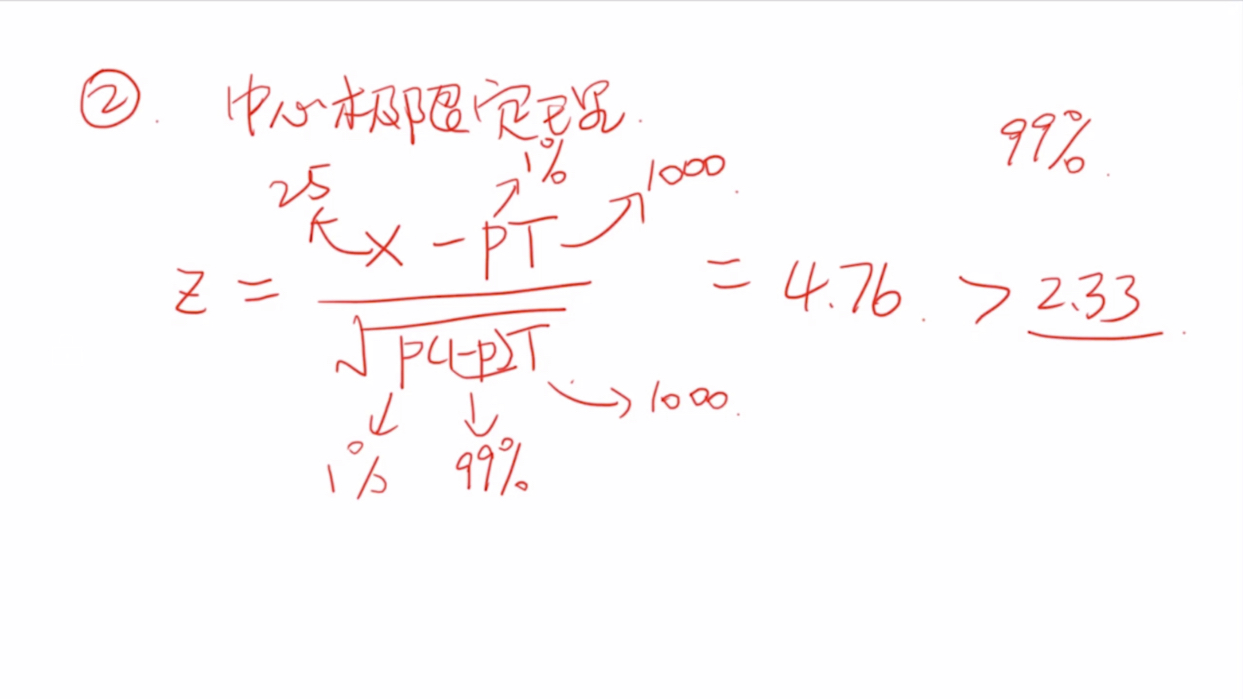 ② . 中心极限定理.
99% .
25 1% 1000 .
z = x - pT / √p(1-p)T = 4.76 . > 2.33 .
1% 99% 1000 .